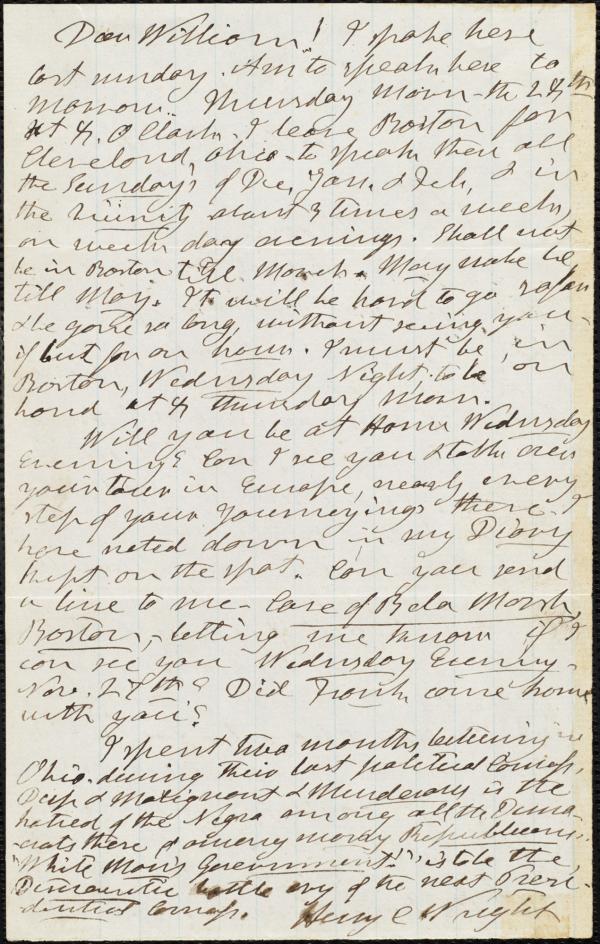 Dear William! I spoke here
last sunday. Am to speak here to
morrow. Thursday Morn - the 28th
at 8. O Clock - I leave Boston for
Cleveland, Ohio - to speak there all
the Sunday's of Dec, Jan. & Feb, & in
the vicinity about 3 times a week,
on week day evenings. Shall not
be in Boston till March. May not be
till May. It will be hard to go so far
& be gone so long, without seeing you -
if but for an hour. I must be, in
Boston, Wednesday Night. to be on
hand at 8 Thursday Morn.
Will you be at Home Wednesday
Evening? Can I see you & talk over
your tour in Europe, nearly every
step of your Journeyings there - I
have noted down in my Diary
kept on the spot. Can you send
a line to me - Care of Bela Marsh,
Boston, - letting me know if I
can see you Wednesday Evening -
Nov. 27th? Did Frank come home
with you?
I spent two months lecturing in
Ohio - during their last political Campaign.
Deep & Malignant & Murderous is the
hatred of the Negro among all the Demo-
-crats there & among many Republicans.
"White Man's Government"! is to be the
Democratic battle cry of the next Presi-
-dential Campaign. Henry C Wright